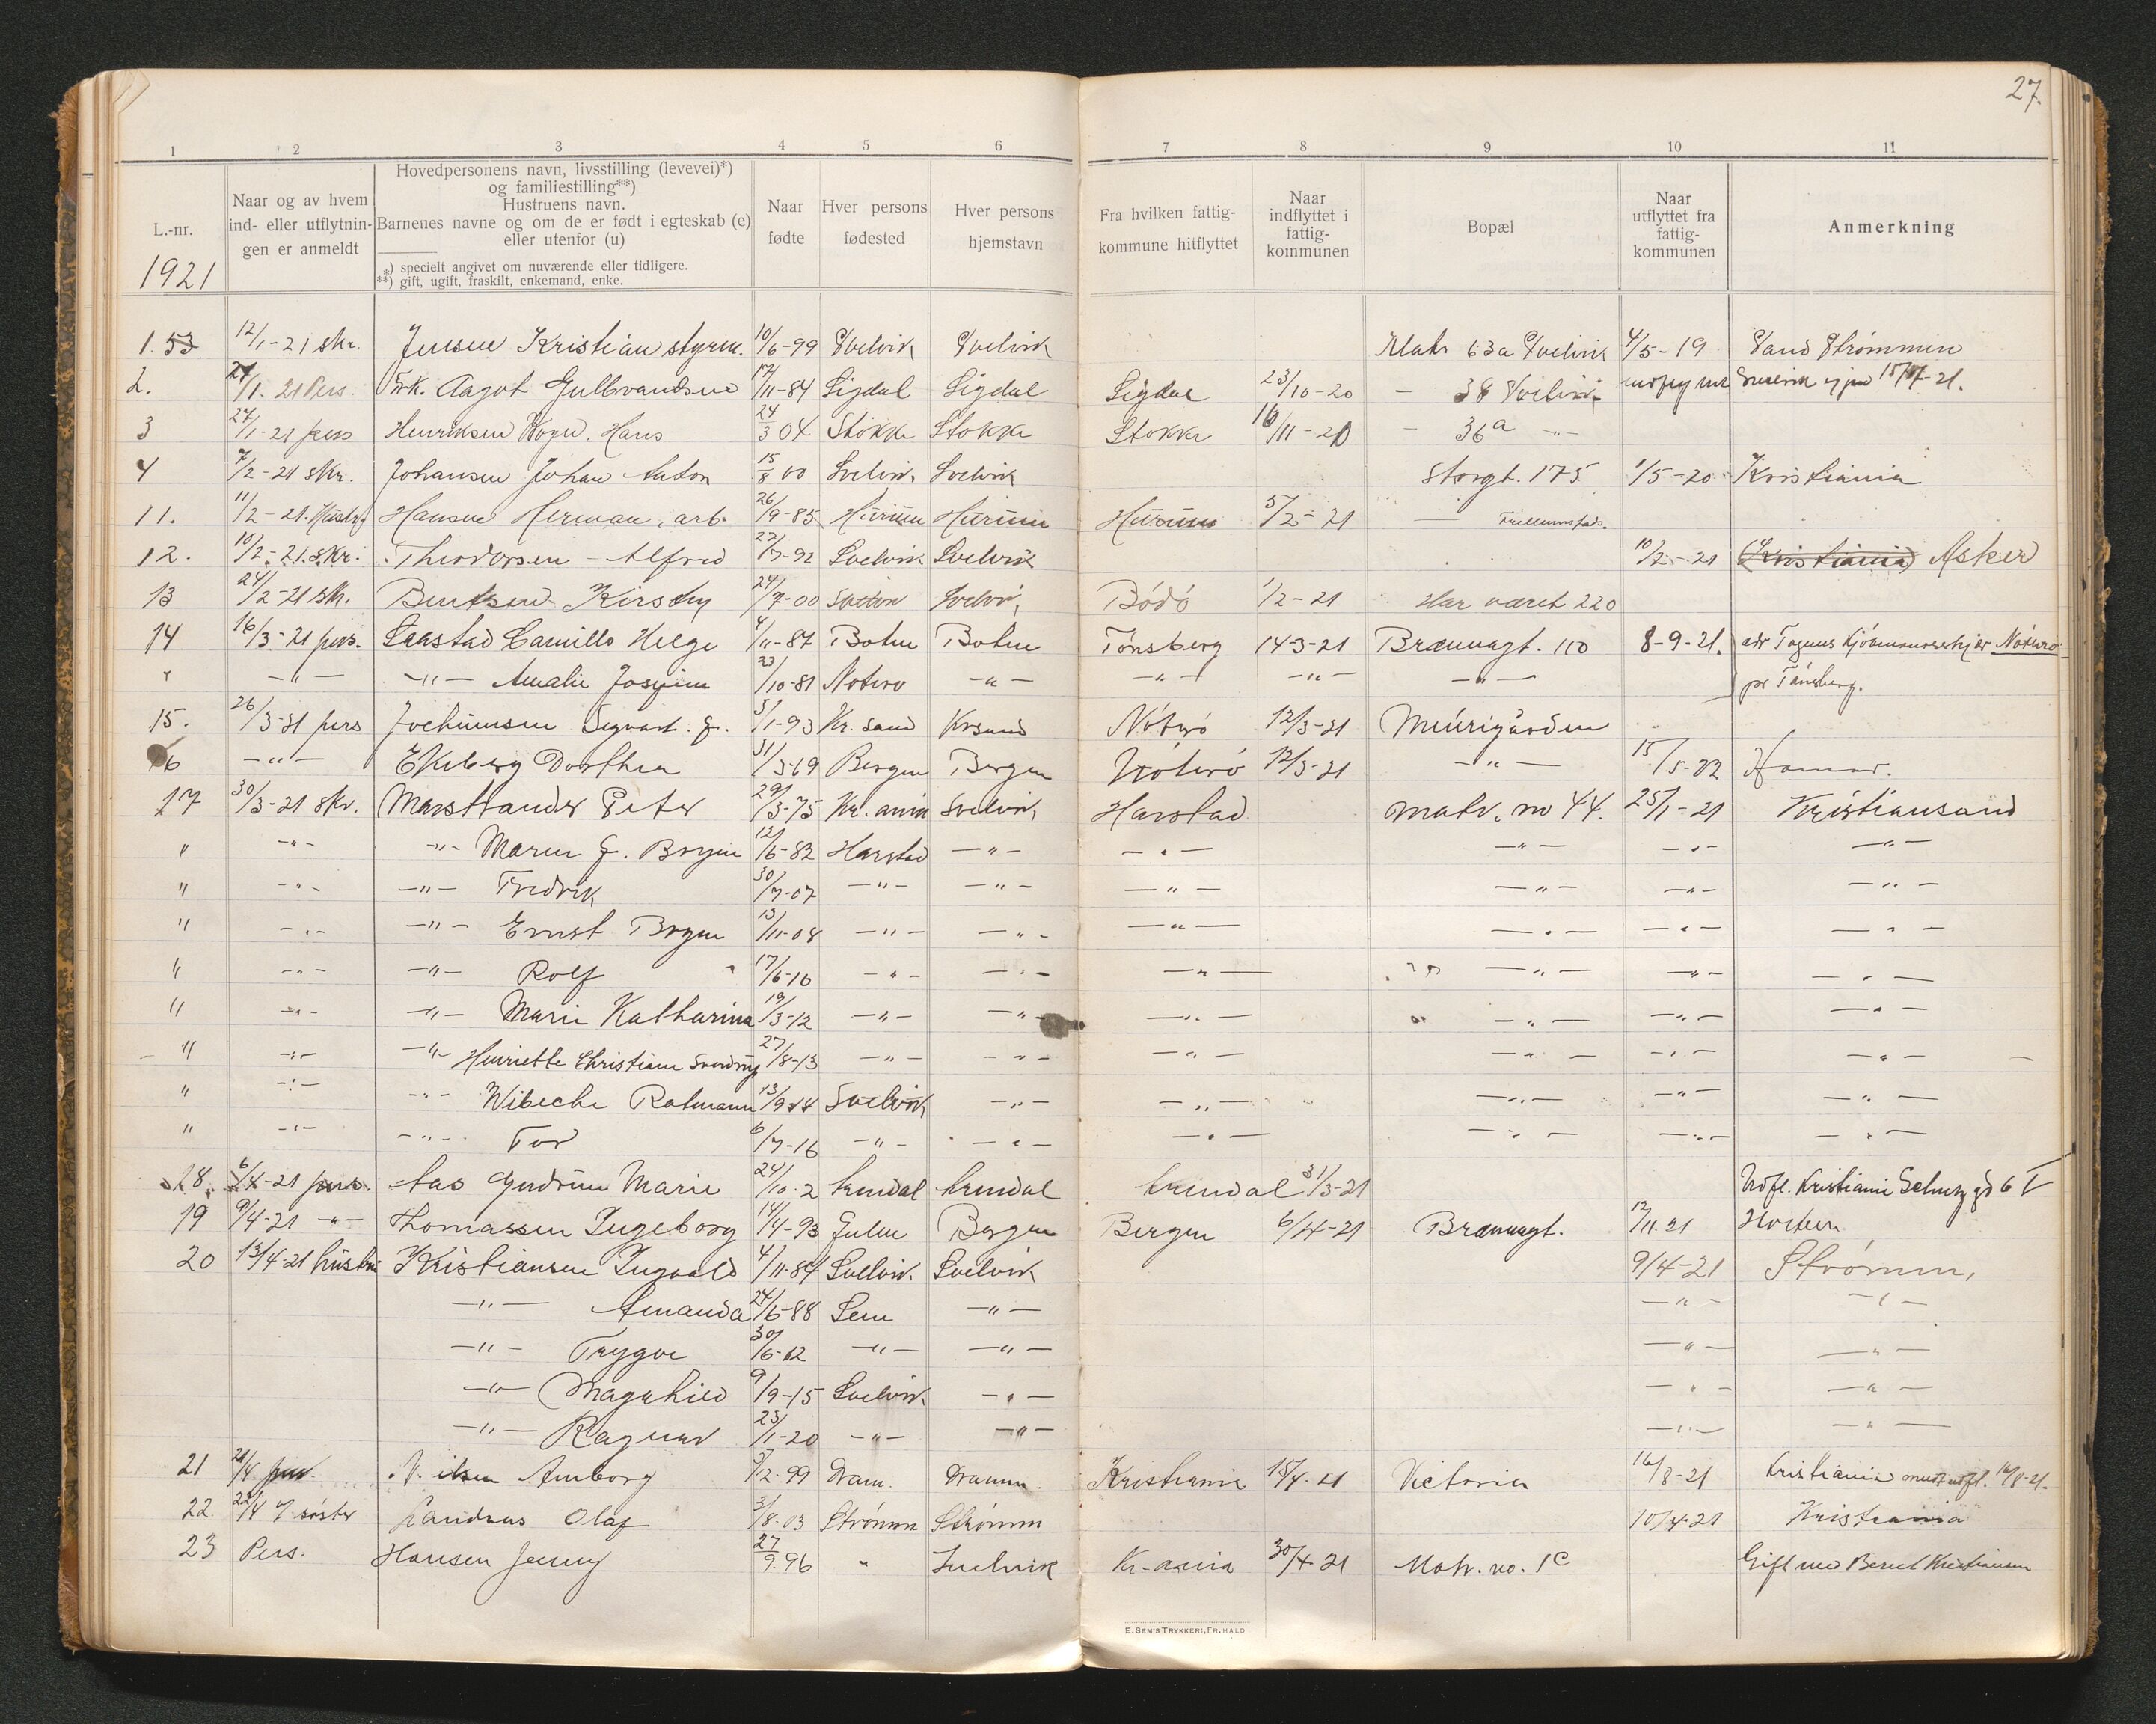 27.
1 2 3 4 5 6 7 8 9 10 11
L.-nr.
1921
Naar og av hvem
ind- eller utflytnin-
gen er anmeldt
Hovedpersonens navn, livsstilling (levevei)*)
og familiestilling**)
Hustruens navn.
Barnenes navne og om de er født i egteskab (e)
eller utenfor (u)
*) specielt angivet om nuværende eller tidligere.
**) gift, ugift, fraskilt, enkemand, enke.
Naar
fødte
Hver persons
fødested
Hver persons
hjemstavn
Fra hvilken fattig-
kommune hitflyttet
Naar
indflyttet i
fattig-
kommunen
Bopæl
Naar
utflyttet fra
fattig-
kommunen
Anmerkning
1. 53 12/1-21 skr. Jensen Kristian styrm. 10/6-99 Svelvik Svelvik Matr 63a Svelvik 4/5-19 Sand Strømmen
2. 21/1. 21 Pers. Frk. Aagot Gulbrandsen 17/11-84 Sigdal Sigdal Sigdal 23/10-20 - 38 Svelvik
3 24/1-21 pers Henriksen Hans 24/3 04 Stokke Stokke Stokke 16/11-20 - 36a -"-
4 7/2-21 skr. Johansen Johan Anton 15/8 00 Svelvik Svelvik Storgt. 175 1/5-20 Kristiania
11. 11/2-21. Hansen Herman, arb. 26/9-85 Hurum Hurum Hurum 5/2-21 —
12. 10/2-21. skr. Theodorsen - Alfred 22/7-92 Svelvik Svelvik 10/2-21 (Kristiania) Asker
13 24/2-21 sk. Bentsen Kirsty 24/7-00 Svelvik Svelvik Bødø 1/2-21 Har været 220
14 16/3-21 pers. Saastad Camillo Helge 4/11-87 Botne Botne Tønsberg 14-3-21 Brænnagt. 110 8-9-21. adr Nøtterø
" -"- -"- Amalie Josefine 23/10-81 Notero -"- -"- -"- -"- pr Tønsberg.
15. 26/3-21 pers Jochumsen Segvart. J. 3/1-93 Kr. sand Krsand Nøterø 12/3-21 Meurigården
16 -"- Ekeberg Dorthea 31/3-69 Bergen Bergen Nøterø 12/3-21 -"- 15/5-22 Hamar.
17 30/3-21 skr. Marstrander Peter 29/3-75 Kr. ania Svelvik Harstad Matr. no 44. 25/1-21 Kristiansand
" -"- -"- Maren J. Borgen 12/6-82 Harstad -"- -"- -"- -"- -"-
" -"- -"- Fredrik 30/7-07 -"- -"- -"- -"- -"- -"-
" -"- -"- Ernst Borgen 13/11-08 -"- -"- -"- -"- -"- -"-
" -"- -"- Rolf " 17/6-10 -"- -"- -"- -"- -"- -"-
" -"- -"- Marie Katharina 19/3-12 -"- -"- -"- -"- -"- -"-
" -"- -"- Henriette Christiane Sverdrup 27/8-13 -"- -"- -"- -"- -"- -"-
" -"- -"- Wibecke Rotmann 13/9-14 Svelvik -"- -"- -"- -"- -"-
" -"- -"- Tor 6/7-16 -"- -"- -"- -"- -"- -"-
18. 6/4-21 pers. Aas Gudrun Marie 24/10-2 Arendal Arendal Arendal 31/3-21 Utfl. Kristiania
19 9/4-21 -"- Thomassen Ingeborg 14/4-93 Gulen Bergen Bergen 6/4-21 Brænnagt. 17/11.21 Horten
20 13/4-21 hustru Kristiansen Ingvald 4/11-84 Svelvik. Svelvik 9/4-21 Strømm,
-"- Amanda 24/6-88 Sem -"- -"- -"-
-"- Trygve 30/6-12 -"- -"- -"- -"-
-"- Magnhild 9/9-15 Svelvik -"- -"- -"-
-"- Ragnar 23/1-20 -"- -"- -"- -"-
21 21/4 pers. Nilsen Amborg 5/2-99 Dram. Dramm. Kristiania 15/4-21 Victoria 16/8-21 Kristiania utfl. 16/8-21.
22 22/4 søster Olaf 3/8-03 Strømm Strømm 10/4-21 Kristiania
23 Pers. Hansen Jenny 27/9.96 " Svelvik Kr-ania 30/4-21 Matr. no. 1c Gift med Bernt Kristiansen
E. SEM'S TRYKKERI, FR.HALD